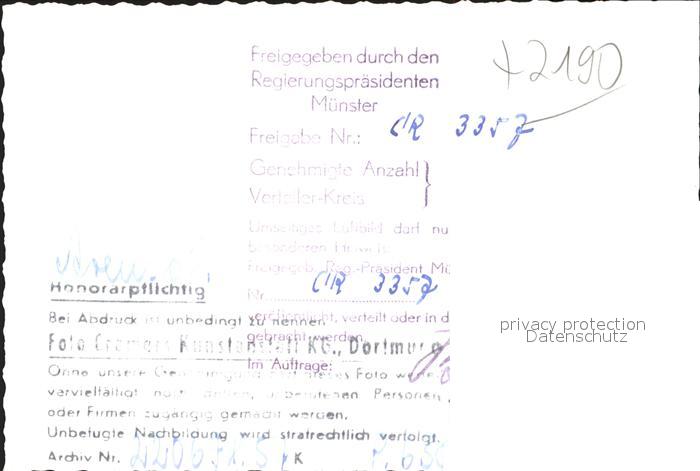 +2190
Freigegeben durch den
Regierungspräsidenten
Münster
Freigabe Nr.: CR 3357
Genehmigte Anzahl
Verteiler-Kreis
Umseitiges Luftbild darf nu
besonderen Hinweis:
Freigegeb. Reg.-Präsident Mü
Nr. CR 3357
veröffentlicht, verteilt oder in d
gebracht werden.
Im Auftrage:
Honorarpflichtig
Bei Abdruck ist unbedingt zu nennen
Foto Cramers Kunstanstalt KG., Dortmund
Ohne unsere Genehmigung darf dieses Foto weder
vervielfältigt noch dritten, Personen
oder Firmen zugängig gemacht werden.
Unbefugte Nachbildung wird strafrechtlich verfolgt.
Archiv Nr. K
privacy protection
Datenschutz